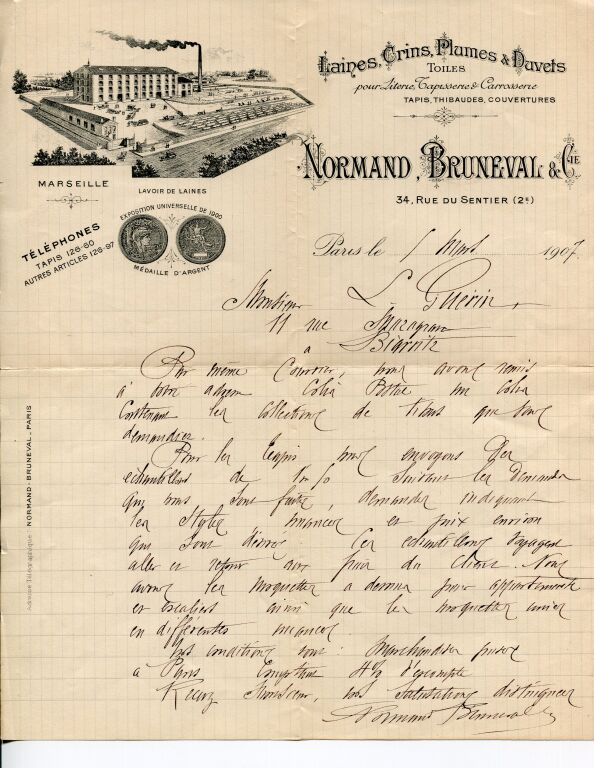 Laines, Crins, Plumes & Duvets
TOILES
pour Literie, Tapisserie & Carrosserie
TAPIS, THIBAUDES, COUVERTURES
NORMAND, BRUNEVAL & CIE
34, RUE DU SENTIER (2e)
MARSEILLE
LAVOIR DE LAINES
EXPOSITION UNIVERSELLE DE 1900
MÉDAILLE D'ARGENT
TÉLÉPHONES
TAPIS 126-60
AUTRES ARTICLES 126-97
Adresse Télégraphique : NORMAND-BRUNEVAL-PARIS
Paris le 5 1907
Monsieur L. Guérin,
11 rue Mazagran
à Biarritz
Par même Courrier, nous avons remis
à votre adresse Colis Postal un colis
Contenant les collections de tissus que vous
demandiez.
Pour les tapis nous envoyons des
échantillons de suivant les demandes
qui nous sont faites, demandes indiquant
les styles nuances et prix environ
qui sont désirés. Ces échantillons voyagent
aller et retour aux frais du client. Nous
avons les moquettes à dessins pour appartements
et escaliers ainsi que les moquettes unies
en différentes nuances.
Nos conditions sont : Marchandise prise
à Paris Comptant 4% d'escompte
Recevez Monsieur, nos salutations distinguées
Normand Bruneval